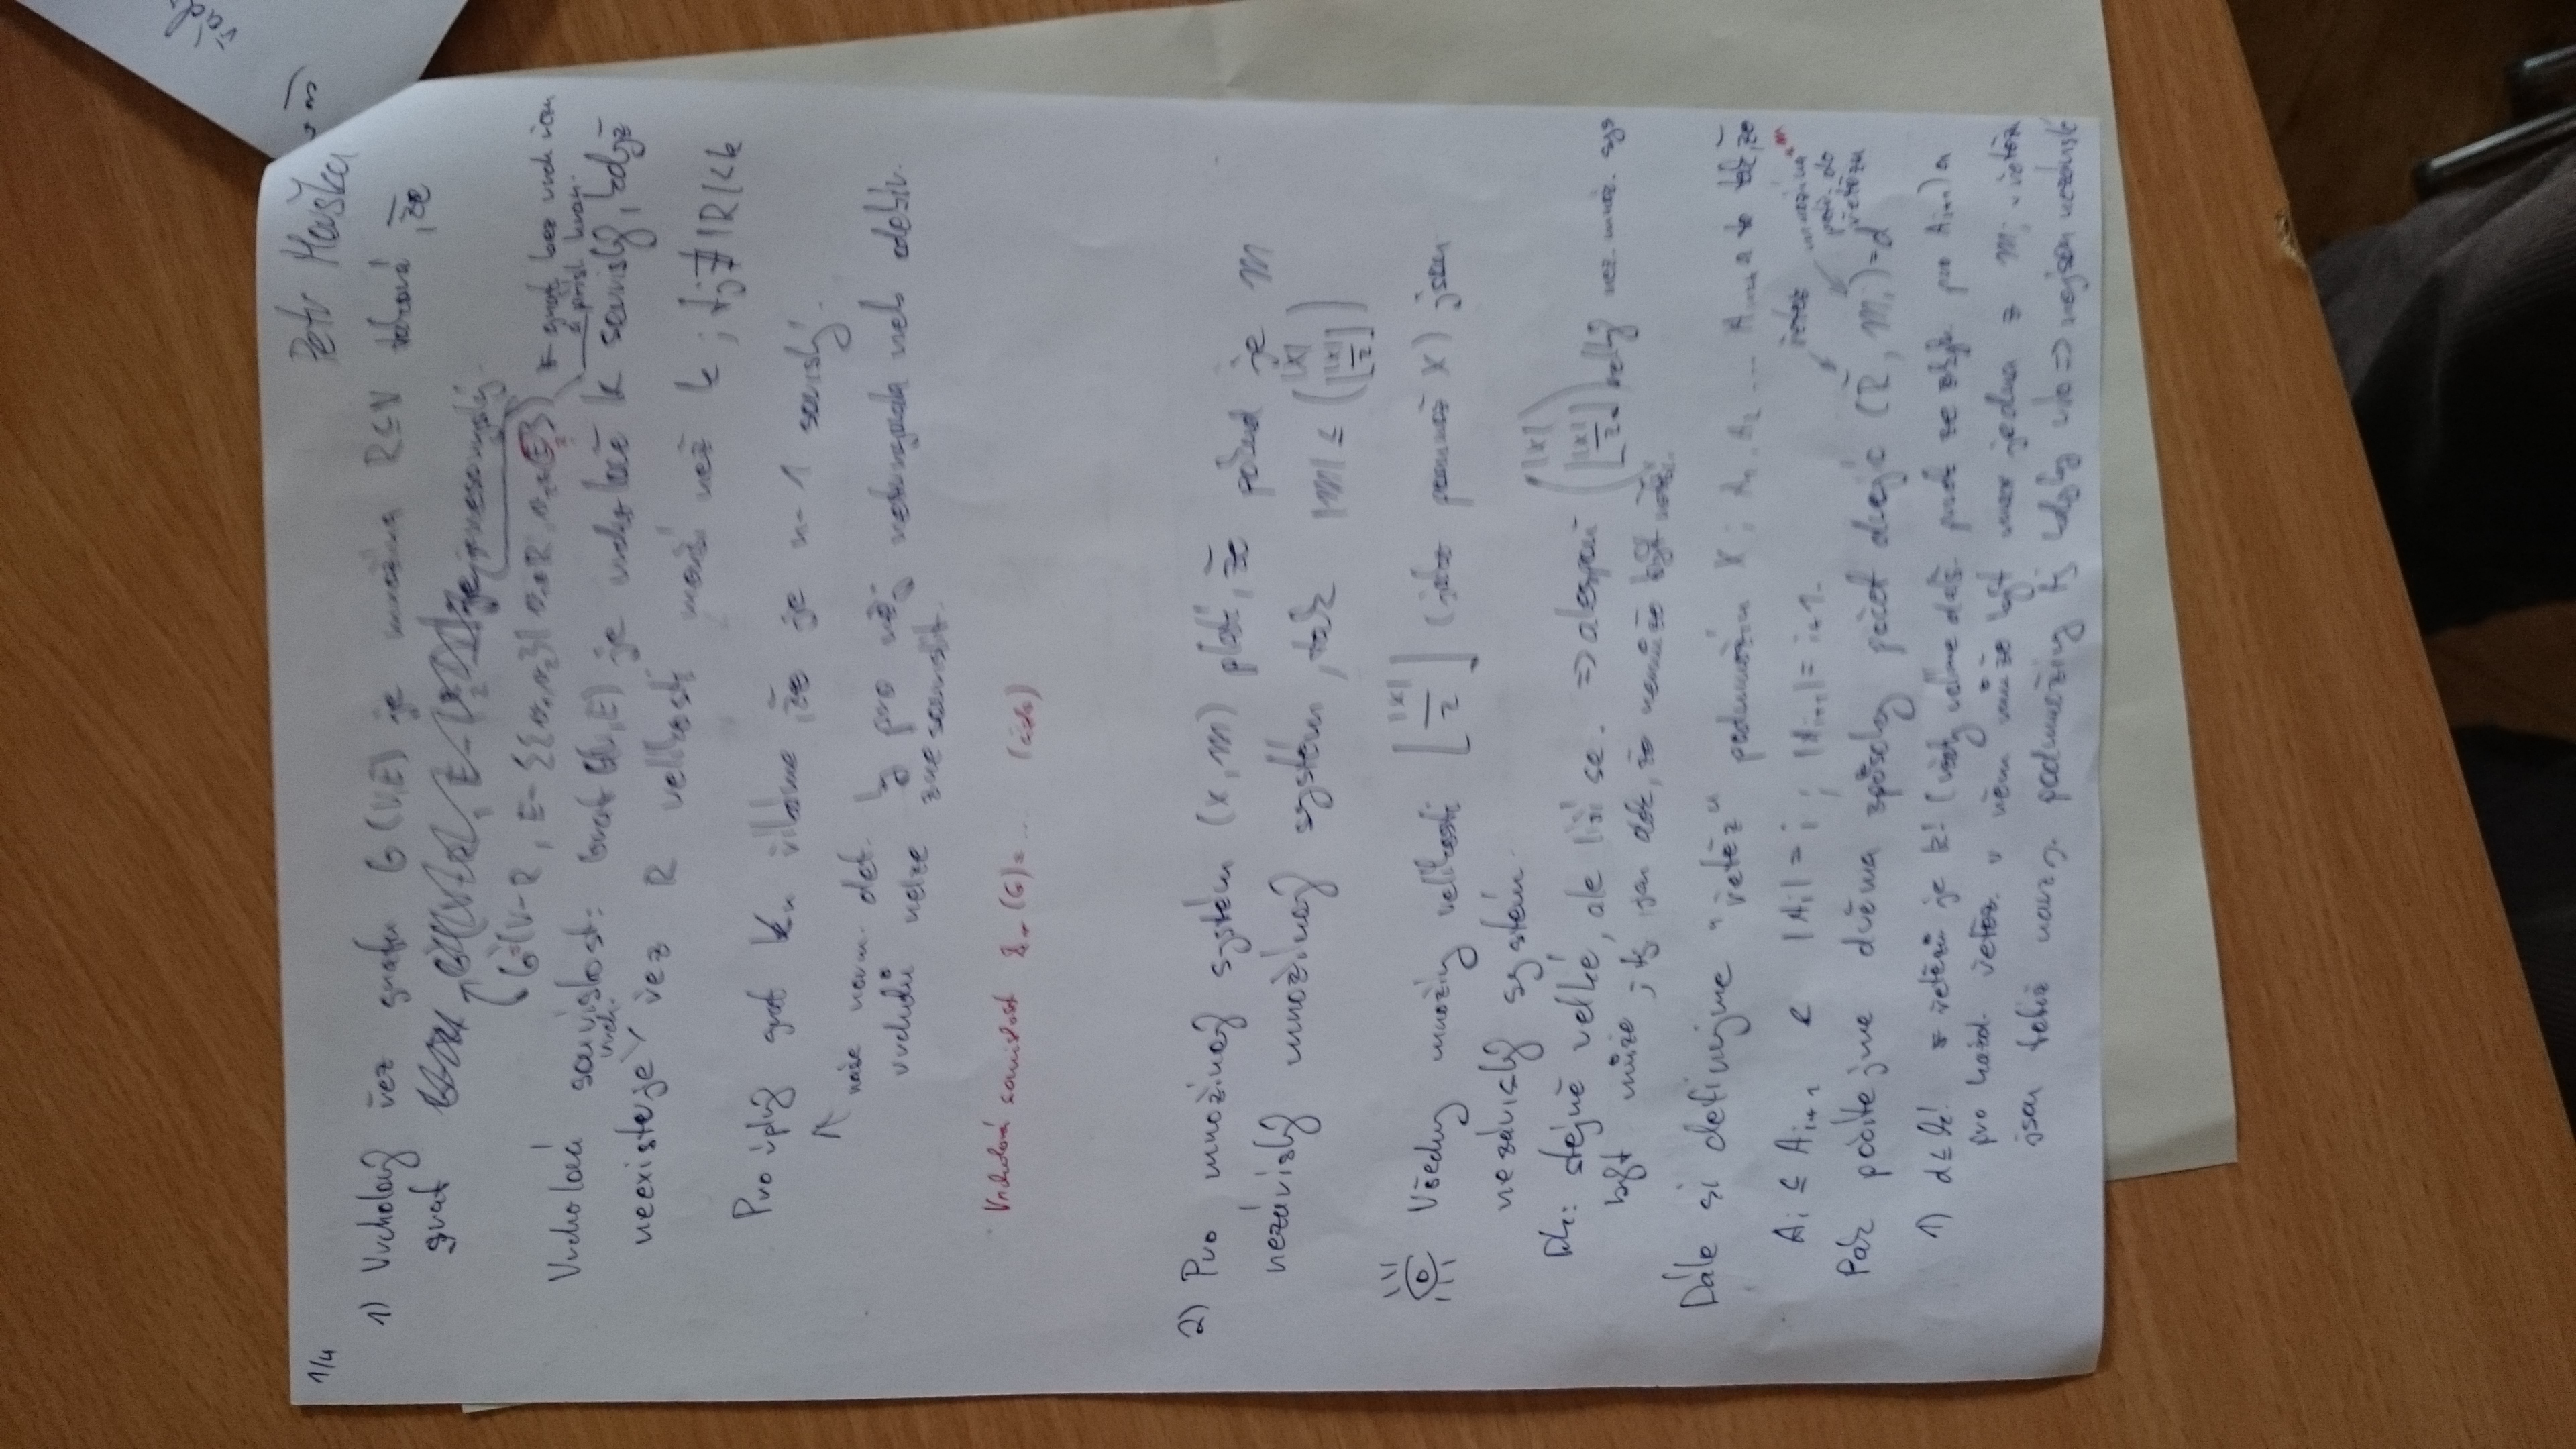 1/4
Petr Houška
řád
1) Vrcholový řez grafu G(V,E) je množina R⊆V taková, že
graf je nesouvislý.
G=(V-R, E-{{v₁,v₂}| v₁∈R, v₂∈E}) ← graf bez vrcholům
a přísl. hran.
Vrcholová souvislost: Graf G(V,E) je vrcholově k souvislý, když
neexistuje vrch. řez R velikosti menší než k ; tj ∄ |R|<k
Pro úplný graf Kn říkáme, že je n-1 souvislý.
↑ naše norm. def. by pro něj nefungovala neb odebír.
vrcholů nelze znesouvislit.
Vrcholová souvislost kᵥ(G)= ... (číslo)
2) Pro množinový systém (X, M) platí, že pokud je M
nezávislý množinový systém, tak |M| ≤ (|X| ⌊|X|/2⌋)
Všechny množiny velikosti ⌊|X|/2⌋ (jako podmnož X) jsou
nezávislý systém.
Dk: stejně velké, ale liší se. ⇒ alespoň (|X| ⌊|X|/2⌋) velký nez. množ. sys
být může ; tj. jen dok, že nemůže být větší.
Dále si definujme "řetěz" podmnožin X ; A₁, A₂ ... a to tak, že
Aᵢ ⊆ Aᵢ₊₁ |Aᵢ| = i ; |Aᵢ₊₁| = i+1.
řetěz
množina M
patř. do
řetězu
Pak počítejme dvěma způsoby počet dvojic (Ř, Mᵢ)=d
1) d≤k! řetězů je k! (vždy volíme dalš. prvek ze zbyt. pro Aᵢ₊₁) a
pro každ. řetěz v něm může být max jedna z Mᵢ v řetězu
jsou totiž navzáj. podmnožiny tj kdyby ⇒ nejsou nezávislé